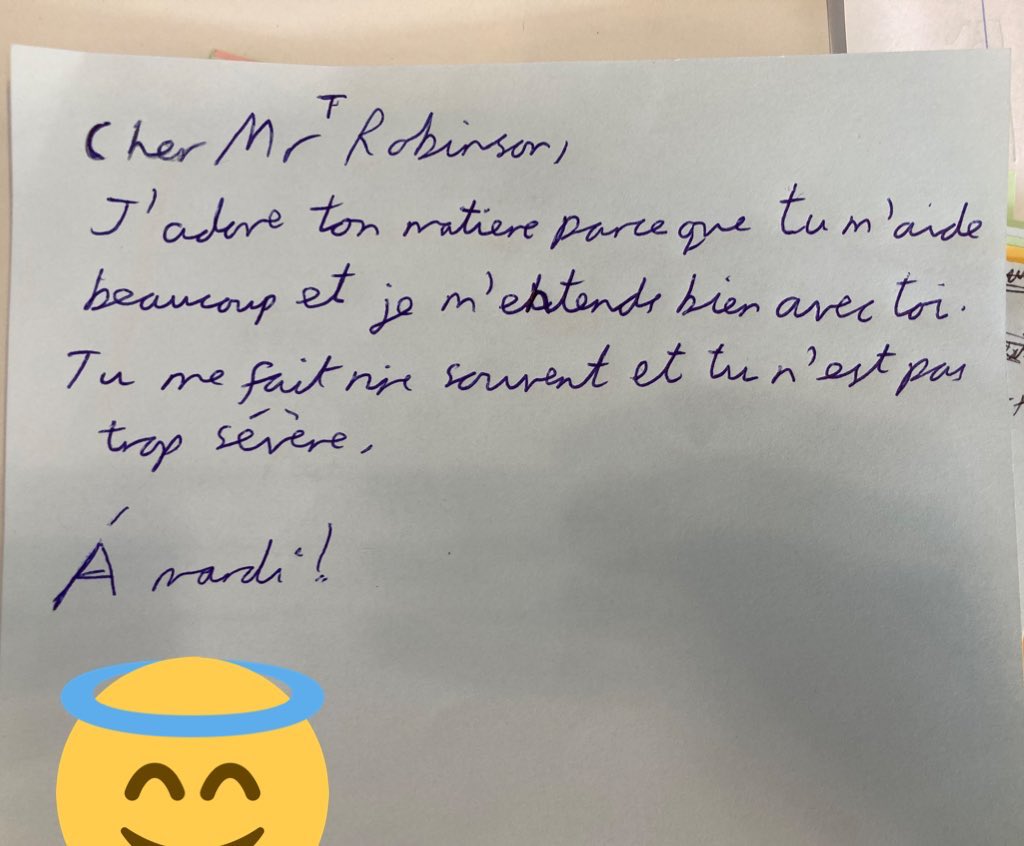 Cher Mr T Robinson,
J'adore ton matiere parce que tu m'aide
beaucoup et je m'entends bien avec toi.
Tu me fait rire souvent et tu n'est pas
trop sévère.
Á mardi!